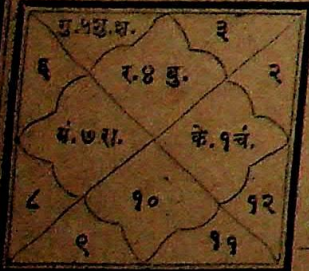 गु.५शु.श.
३
६
र.४ बु.
२
मं.७ रा.
के.१चं.
८
१०
१२
९
११